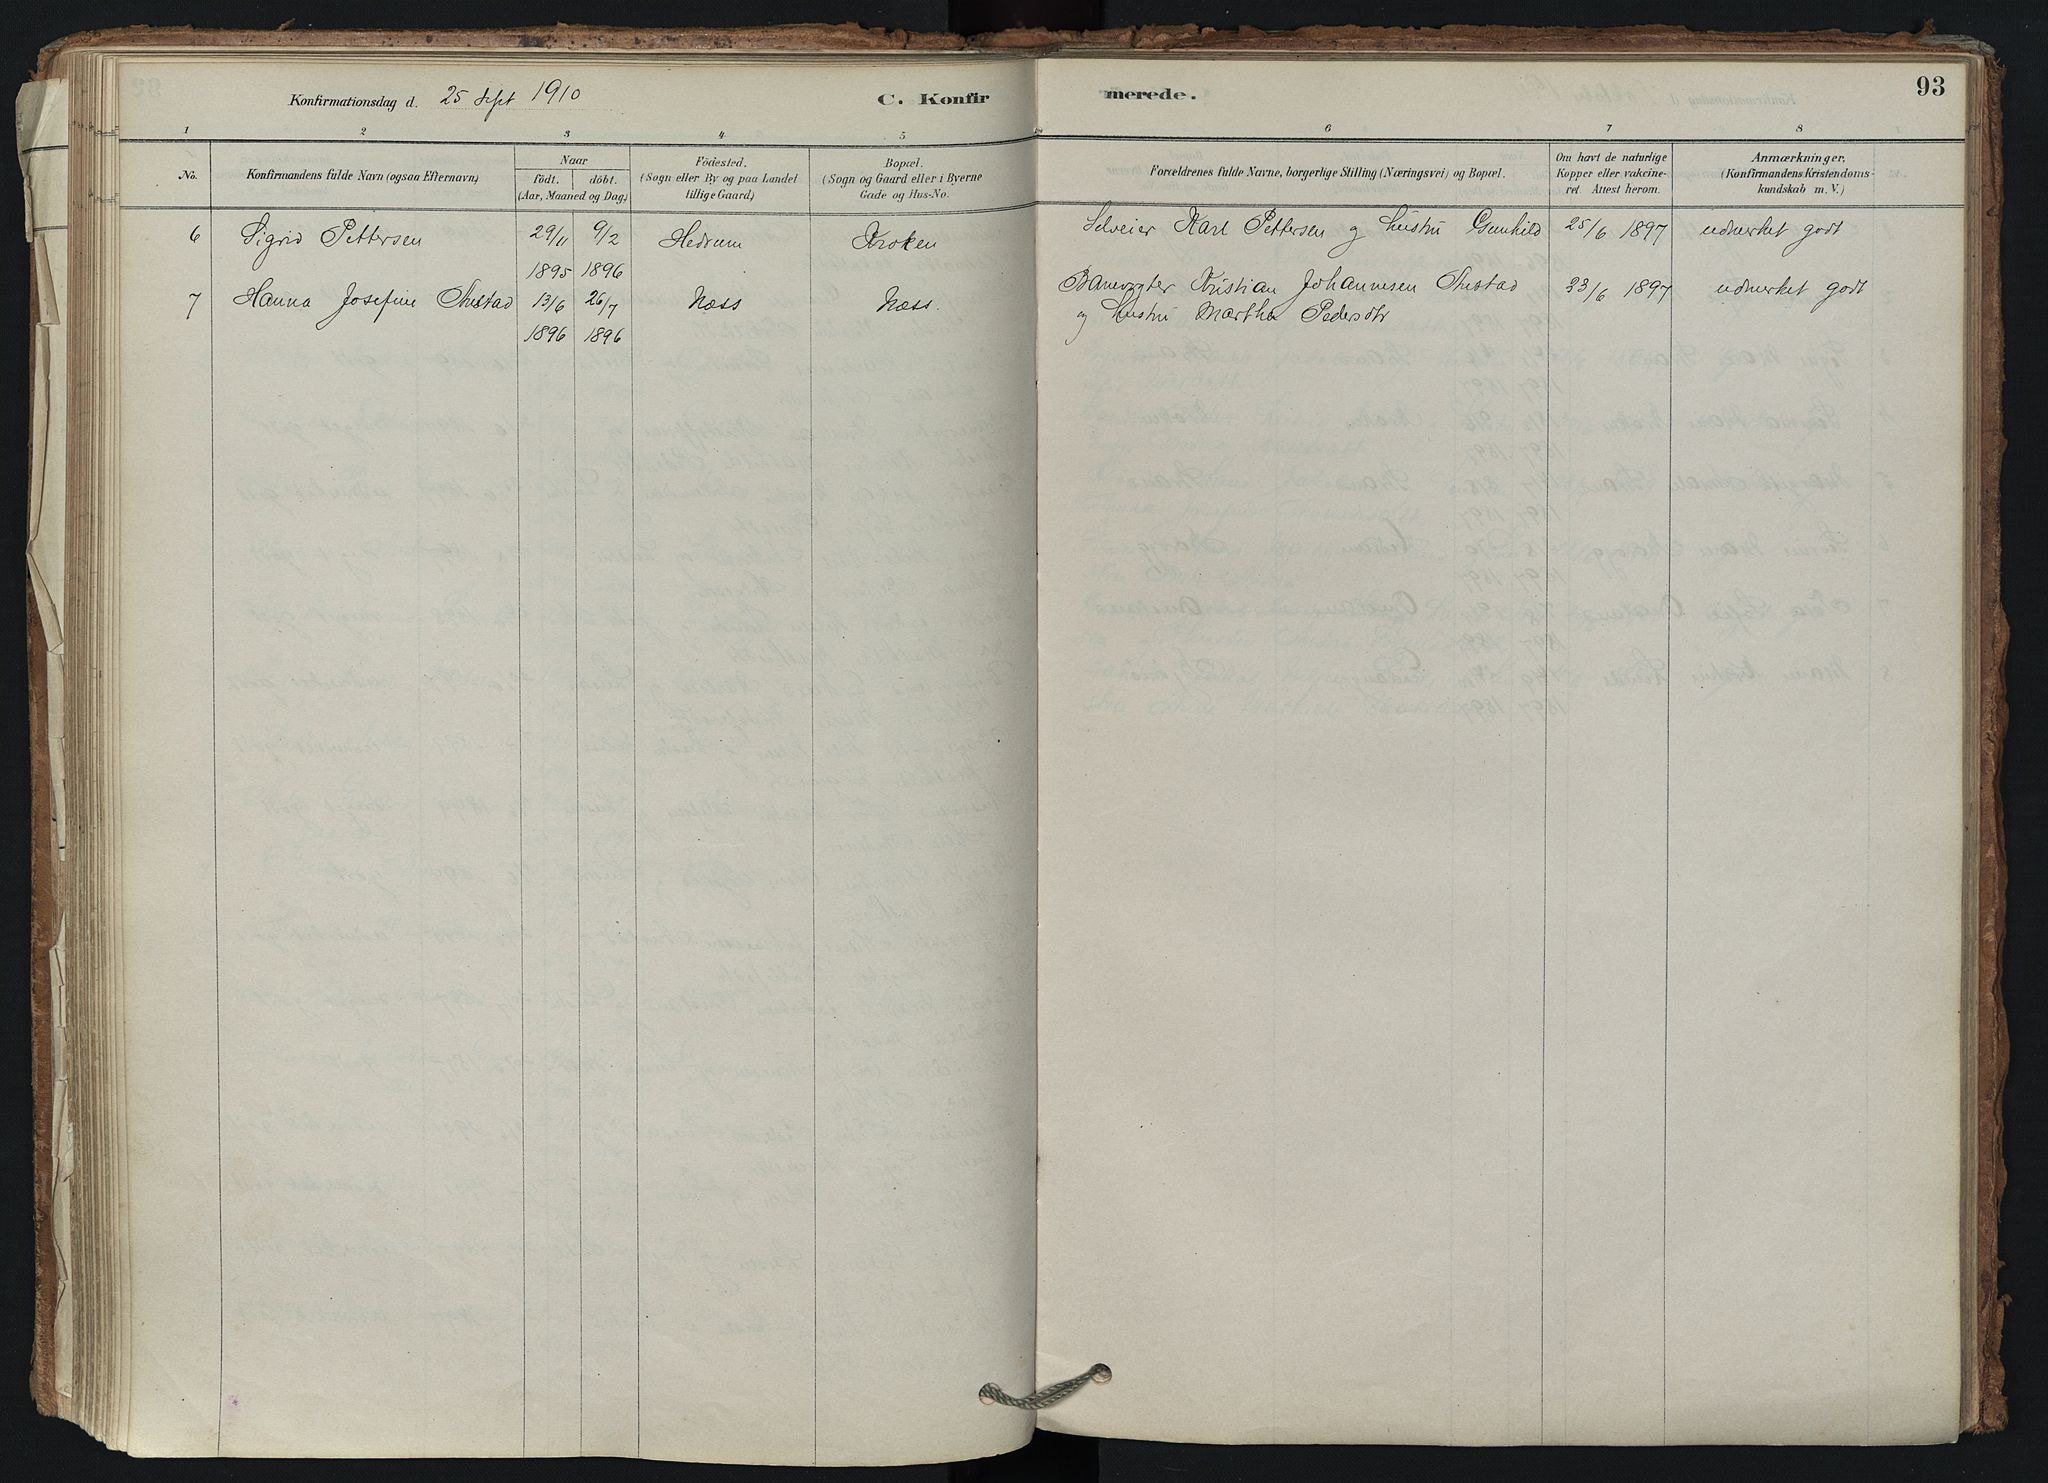 Konfirmationsdag d. 25 Sept 1910 C. Konfirmerede. 93
1 2 3 4 5 6 7 8
No. Konfirmandens fulde Navn (ogsaa Efternavn)
Naar
født. døbt.
(Aar, Maaned og Dag)
Fødested.
(Sogn eller By og paa Landet
tillige Gaard)
Bopæl.
(Sogn og Gaard eller i Byerne
Gade og Hus-No.
Forældrenes fulde Navne, borgerlige Stilling (Næringsvei) og Bopæl.
Om havt de naturlige
Kopper eller vakcine-
ret. Attest herom.
Anmærkninger,
(Konfirmandens Kristendoms-
kundskab m. V.)
6 Sigrid Pettersen 29/11 9/2 Hedrum Kroken Selveier Karl Pettersen og Hustru Gunhild 25/6 1897 udmerket godt
1895 1896
7 Hanna Josefine 13/6 26/7 Næss Næss. Kristian Johannesen 23/6 1897 udmerket godt
1896 1896 og Hustru Marthe Pedersdtr